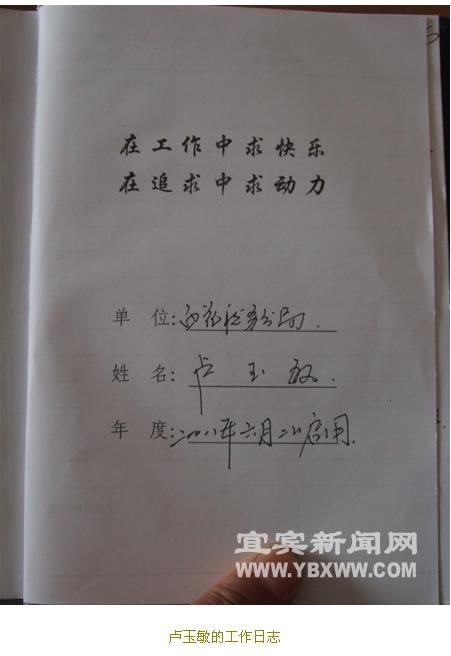 在工作中求快乐
在追求中求动力
单 位: 税务分局.
姓 名: 卢玉敏.
年 度: 二〇〇八年六月二八启用.
宜宾新闻网
WWW.YBXWW.COM
卢玉敏的工作日志